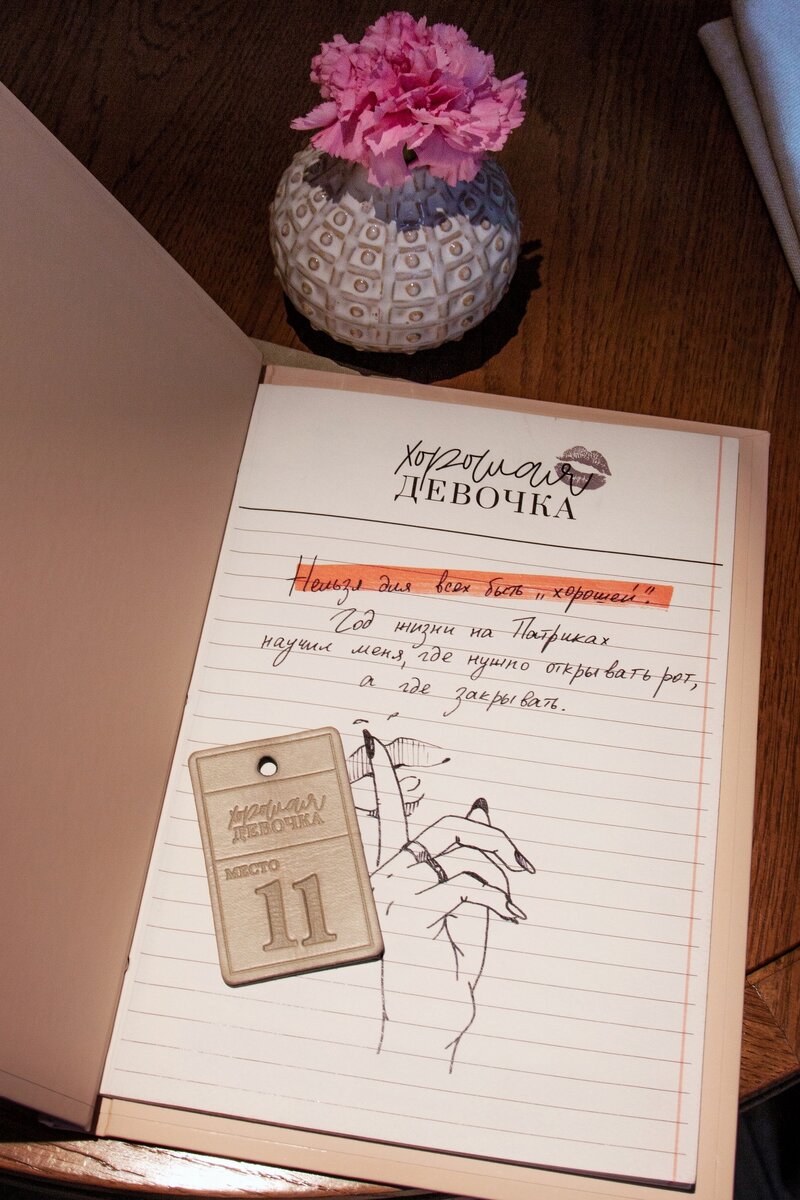 хорошая
ДЕВОЧКА
Нельзя для всех быть „хорошей".
Год жизни на Патриках
научил меня, где нужно открывать рот,
а где закрывать.
хорошая
ДЕВОЧКА
МЕСТО
11